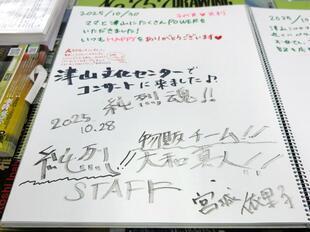 2025/10/20
ママと津山にたくさんPOWERを
いただきました!
いつもHAPPYをありがとうございます♥
津山文化センターで
コンサートに来ました♪
純烈魂!!
2025
10.28
純烈!!
物販チーム!!
大和真人!!
STAFF
宮城
2025/10